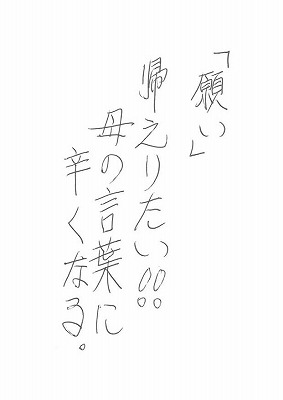 「願い」
帰えりたい!!
母の言葉に
辛くなる。